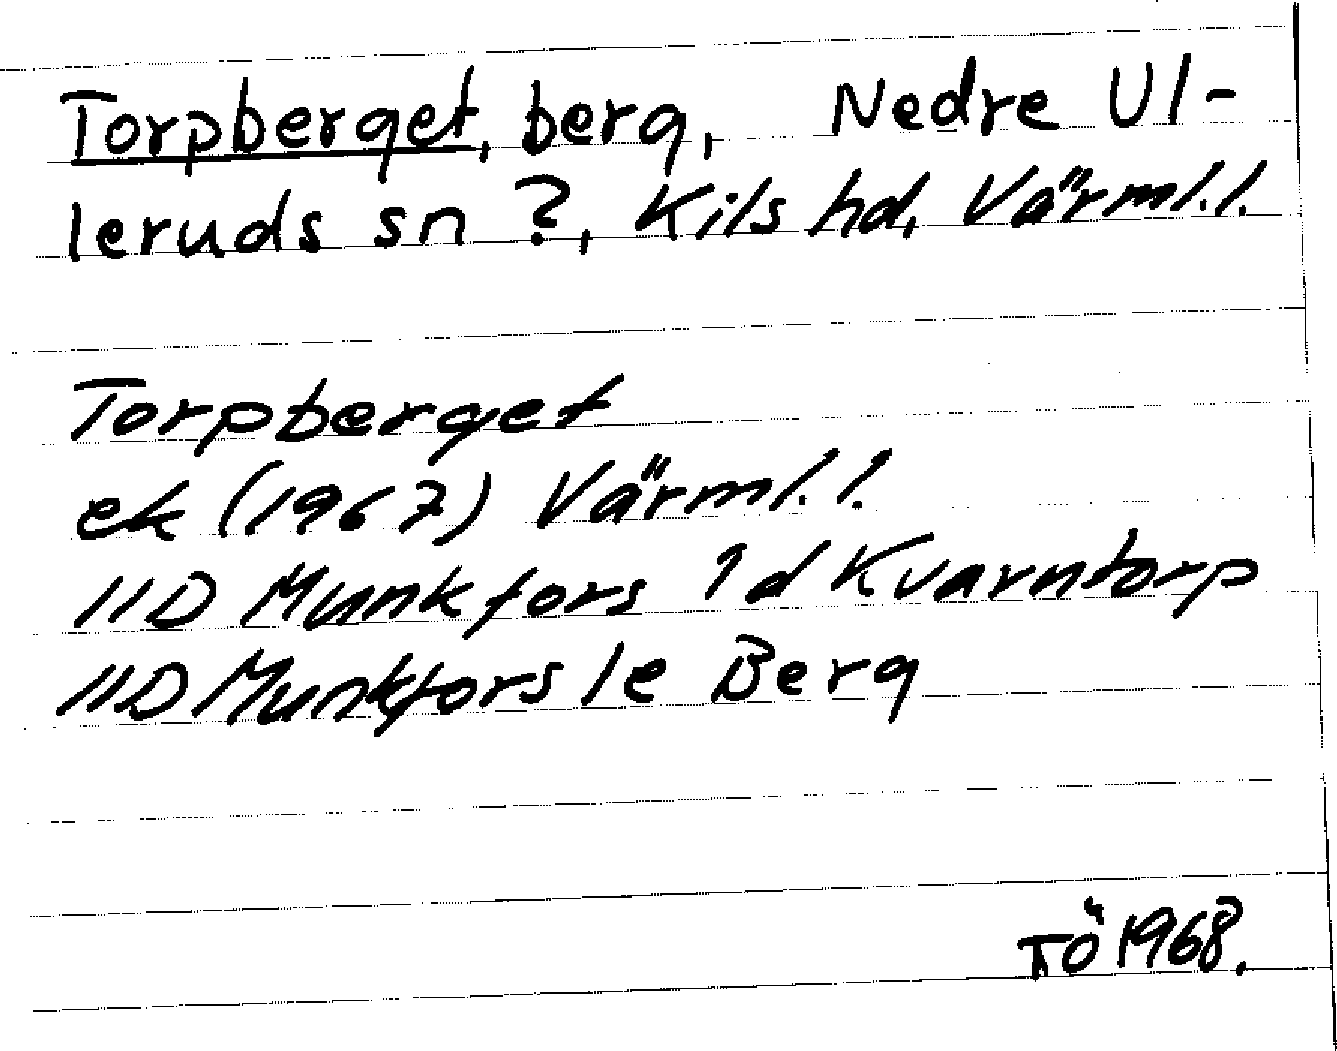 Torpberget, berg, Nedre Ul-
leruds sn ?, Kils hd, Värml.l.
Torpberget
ek (1967) Värml.l.
11D Munkfors 1d Kvarntorp
11D Munkfors 1e Berg
TÖ 1968.